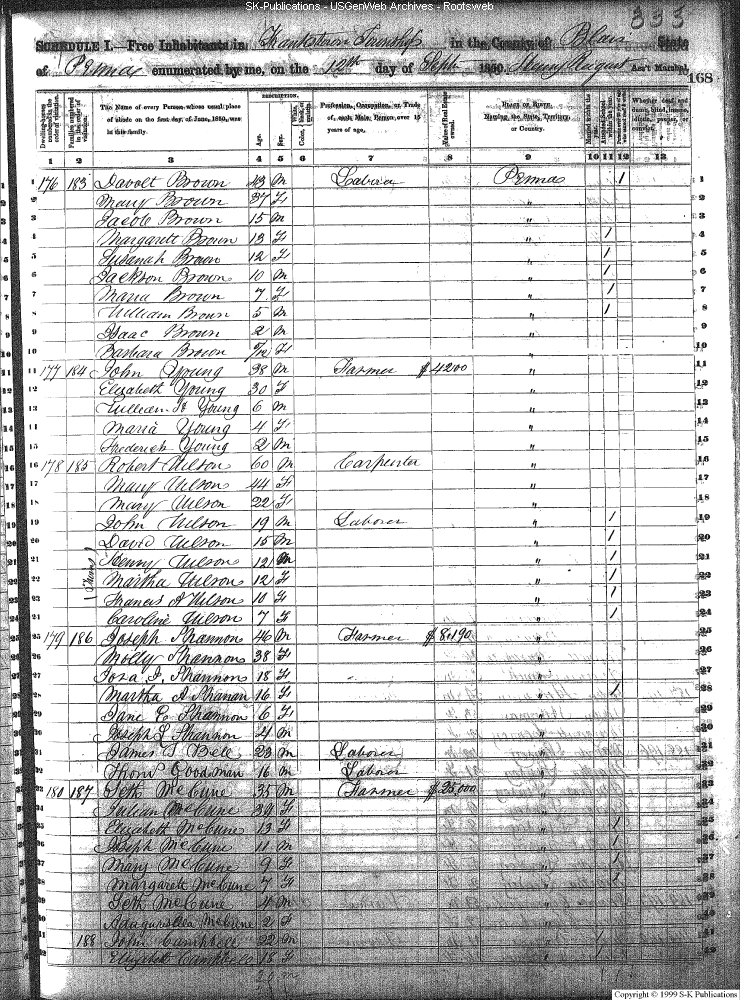 SK-Publications - USGenWeb Archives - Rootsweb
335
SCHEDULE I.—Free Inhabitants in Frankstown Township in the County of Blair State
of Penna enumerated by me, on the 12th day of Sept 1850. Ass't Marshal. 168
Dwelling-houses numbered in the order of visitation.
Families numbered in the order of visitation.
The Name of every Person whose usual place of abode on the first day of June, 1850, was in this family.
DESCRIPTION.
Age.
Sex.
Profession, Occupation, or Trade of each Male Person over 15 years of age.
Value of Real Estate owned.
PLACE OF BIRTH, Naming the State, Territory, or Country.
Whether deaf and dumb, blind, insane, idiotic, pauper, or convict.
1 2 3 4 5 6 7 8 9 10 11 12 13
1 176 183 Davolt Brown 43 m Labora Penna 1 1
2 Mary Brown 37 f " 2
3 Jacob Brown 15 m " 3
4 Margarett Brown 13 f " 1 4
5 Susanah Brown 12 f " 1 5
6 Jackson Brown 10 m " 1 6
7 Maria Brown 7 f " 1 7
8 William Brown 5 m " 1 8
9 Isaac Brown 2 m " 9
10 Barbara Brown f " 10
11 177 184 John Young 38 m Farmer $ 4200 " 11
12 Elizabeth Young 30 f " 12
13 William Young 6 m " 13
14 Maria Young 4 f " 14
15 Frederick Young 2 m " 15
16 178 185 Robert Wilson 60 m Carpenter " 16
17 Mary Wilson 44 f " 17
18 Mary Wilson 22 f " 18
19 John Wilson 19 m Laborer " 1 19
20 David Wilson 15 m " 1 20
21 (Twins) Henry Wilson 12 m " 1 21
22 Martha Wilson 12 f " 1 22
23 Francis A Wilson 10 f " 1 23
24 Caroline Wilson 7 f " 1 24
25 179 186 Joseph Shannon 46 m Farmer $ 8,190 " 25
26 Molly Shannon 38 f " 26
27 Shannon 18 f " 27
28 Martha A Shanan 16 f " 1 28
29 Jane E Shannon 6 f " 29
30 Joseph L Shannon 4 m " 30
31 James S Bell 23 m Laborer " 31
32 Thom Goodman 16 m Laborer " 32
33 180 187 Seth McCune 35 m Farmer $ 25,000 " 33
34 Julian McCune 39 f " 34
35 Elizabeth McCune 13 f " 1 35
36 Joseph McCune 11 m " 1 36
37 Mary McCune 9 f " 1 37
38 Margarett McCune 7 f " 1 38
39 Seth McCune 4 m " 39
40 McCune 2 f " 40
41 188 John Campbell 22 m " 1 41
42 Elizabeth Campbell 18 f " 1 42
Copyright © 1999 S-K Publications